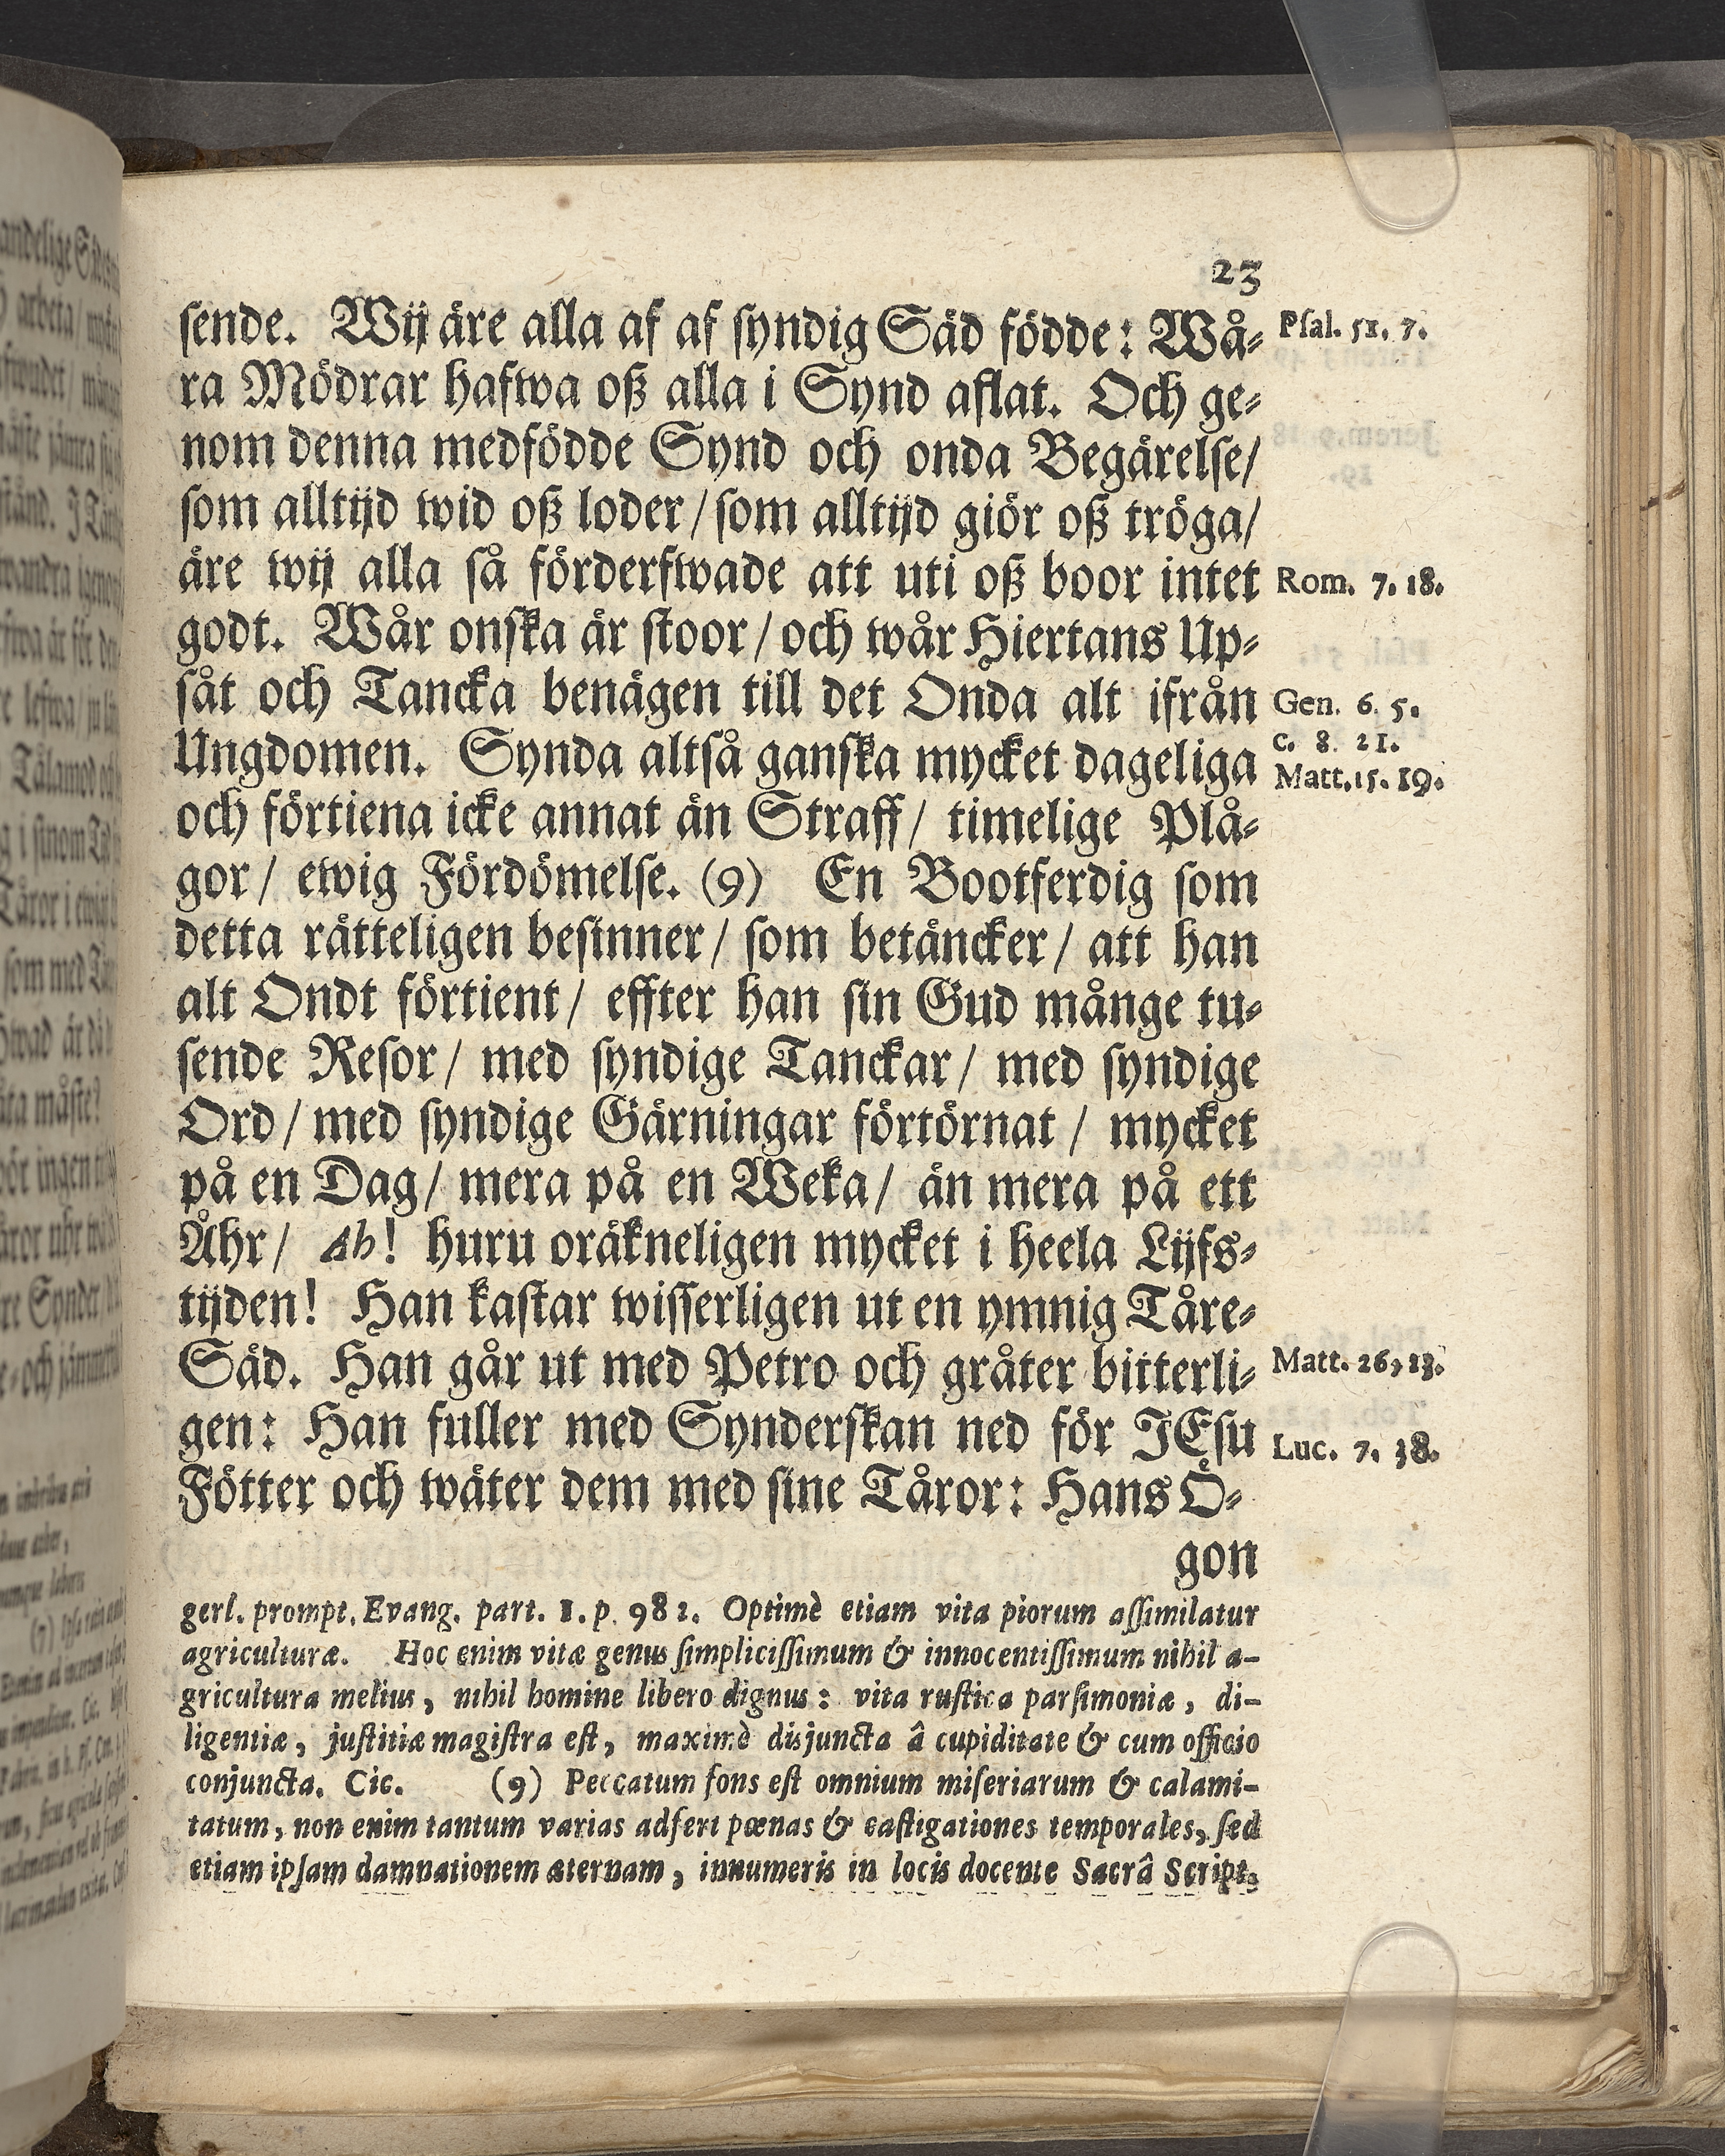 23
sende. Wij äre alla af af syndig Säd födde: Wå-
Psal. 51. 7.
ra Mödrar hafwa oß alla i Synd aflat. Och ge-
nom denna medfödde Synd och onda Begärelse/
som alltijd wid oß loder/ som alltijd giör oß tröga/
äre wij alla så förderfwade att uti oß boor intet
Rom. 7. 18.
godt. Wår onska är stoor/ och wår Hiertans Up-
såt och Tancka benägen till det Onda alt ifrån
Gen. 6. 5.
Ungdomen. Synda altså ganska mycket dageliga
c. 8. 21.
Matt. 15. 19.
och förtiena icke annat än Straff/ timelige Plå-
gor/ ewig Fördömelse. (9) En Bootferdig som
detta rätteligen besinner/ som betäncker/ att han
alt Ondt förtient/ effter han sin Gud månge tu-
sende Resor/ med syndige Tanckar/ med syndige
Ord/ med syndige Gärningar förtörnat/ mycket
på en Dag/ mera på en Weka/ än mera på ett
Åhr/ Ah! huru oräkneligen mycket i heela Lijfs-
tijden! Han kastar wisserligen ut en ymnig Tåre-
Säd. Han går ut med Petro och gråter bitterli-
Matt. 26,
gen: Han fuller med Synderskan ned för JEsu
Luc. 7. 38.
Fötter och wäter dem med sine Tåror: Hans Ö-
gon
gerl. prompt. Evang. part. 1. p. 982. Optimè etiam vita piorum assimilatur
agriculturæ. Hoc enim vitæ genus simplicissimum & innocentissimum nihil a-
gricultura melius, nihil homine libero dignus: vita rustica parsimoniæ, di-
ligentiæ, justitiæ magistra est, maximè disjuncta â cupiditate & cum officio
conjuncta. Cic. (9) Peccatum fons est omnium miseriarum & calami-
tatum, non enim tantum varias adfert pœnas & castigationes temporales, sed
etiam ipsam damnationem æternam, innumeris in locis docente Sacrâ Script.